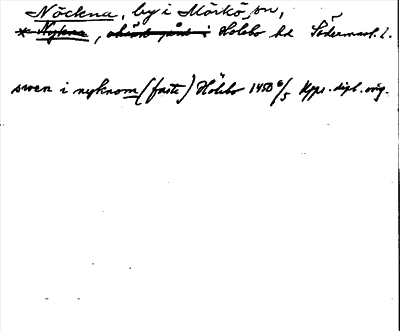 Nöckna, by i Mörkö sn,
* Nykna, okänt gård i Holebo hd Södermanl. l.
swen i nyknom (faste) Hölebo 1450 6/5 Kpps. dipl. orig.